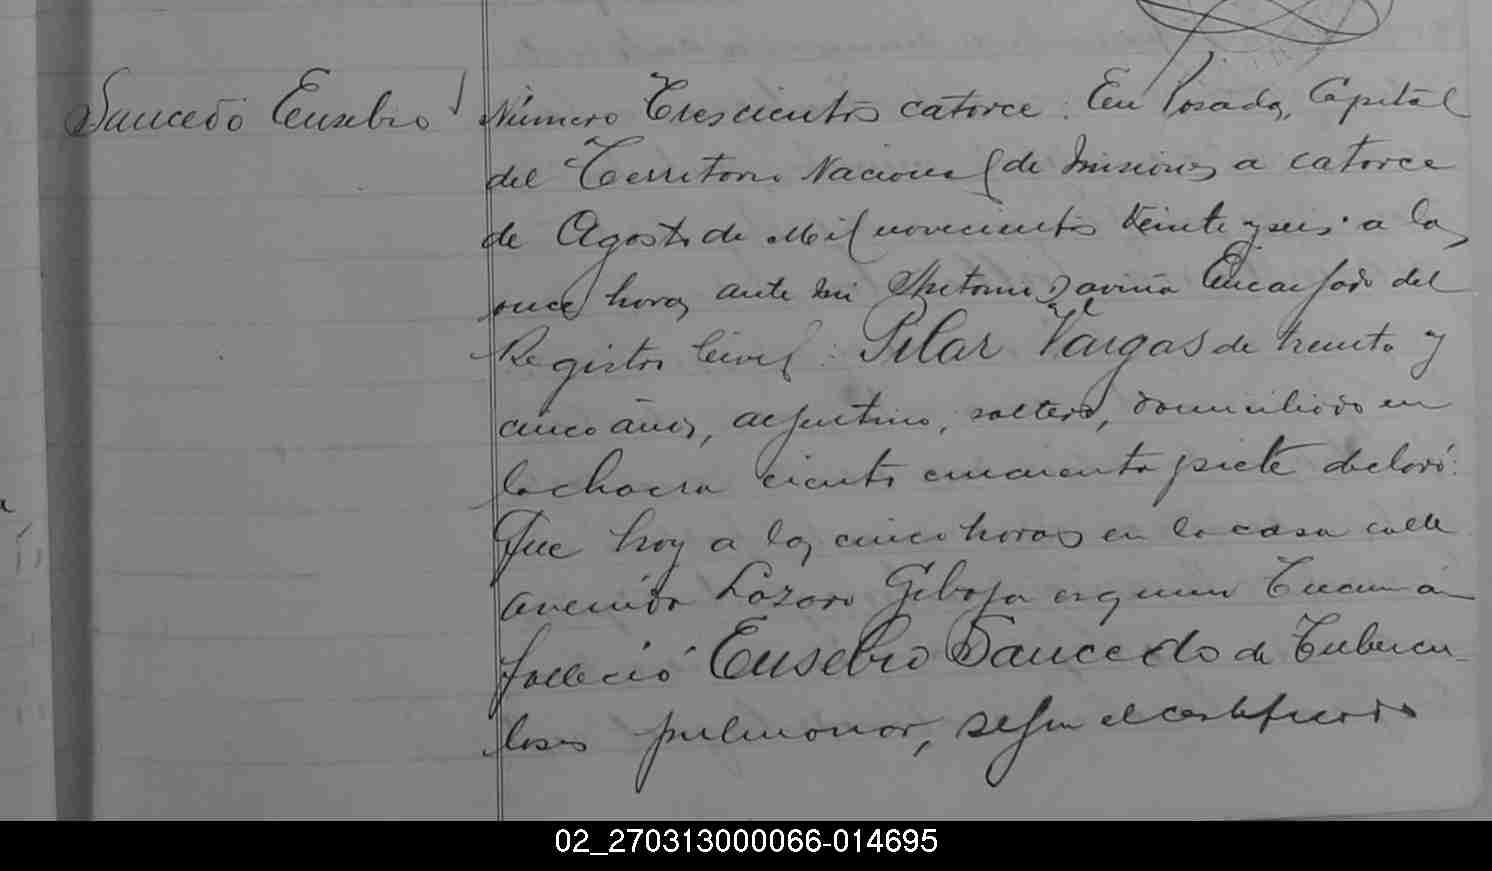 Saucedo Eusebio
Número Trescientos catorce. En Posadas, Capital
del Territorio Nacional de Misiones a catorce
de Agosto de Mil novecientos veinte y seis a las
once horas ante mi Antonio Encargado del
Registro Civil: Pilar Vargas de treinta y
cinco años, argentino, soltero, domiciliado en
la chacra ciento cincuenta siete declaró:
Que hoy a las cinco horas en la casa calle
avenida Lazaro Gibaja esquina Tucumán
falleció Eusebio Saucedo de Tubercu-
losis pulmonar, segun el certificado
02_270313000066-014695